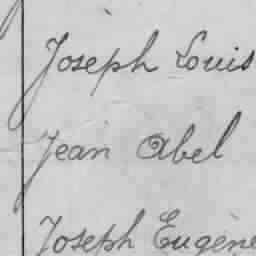 Joseph Louis
Jean Abel
Joseph Eugène